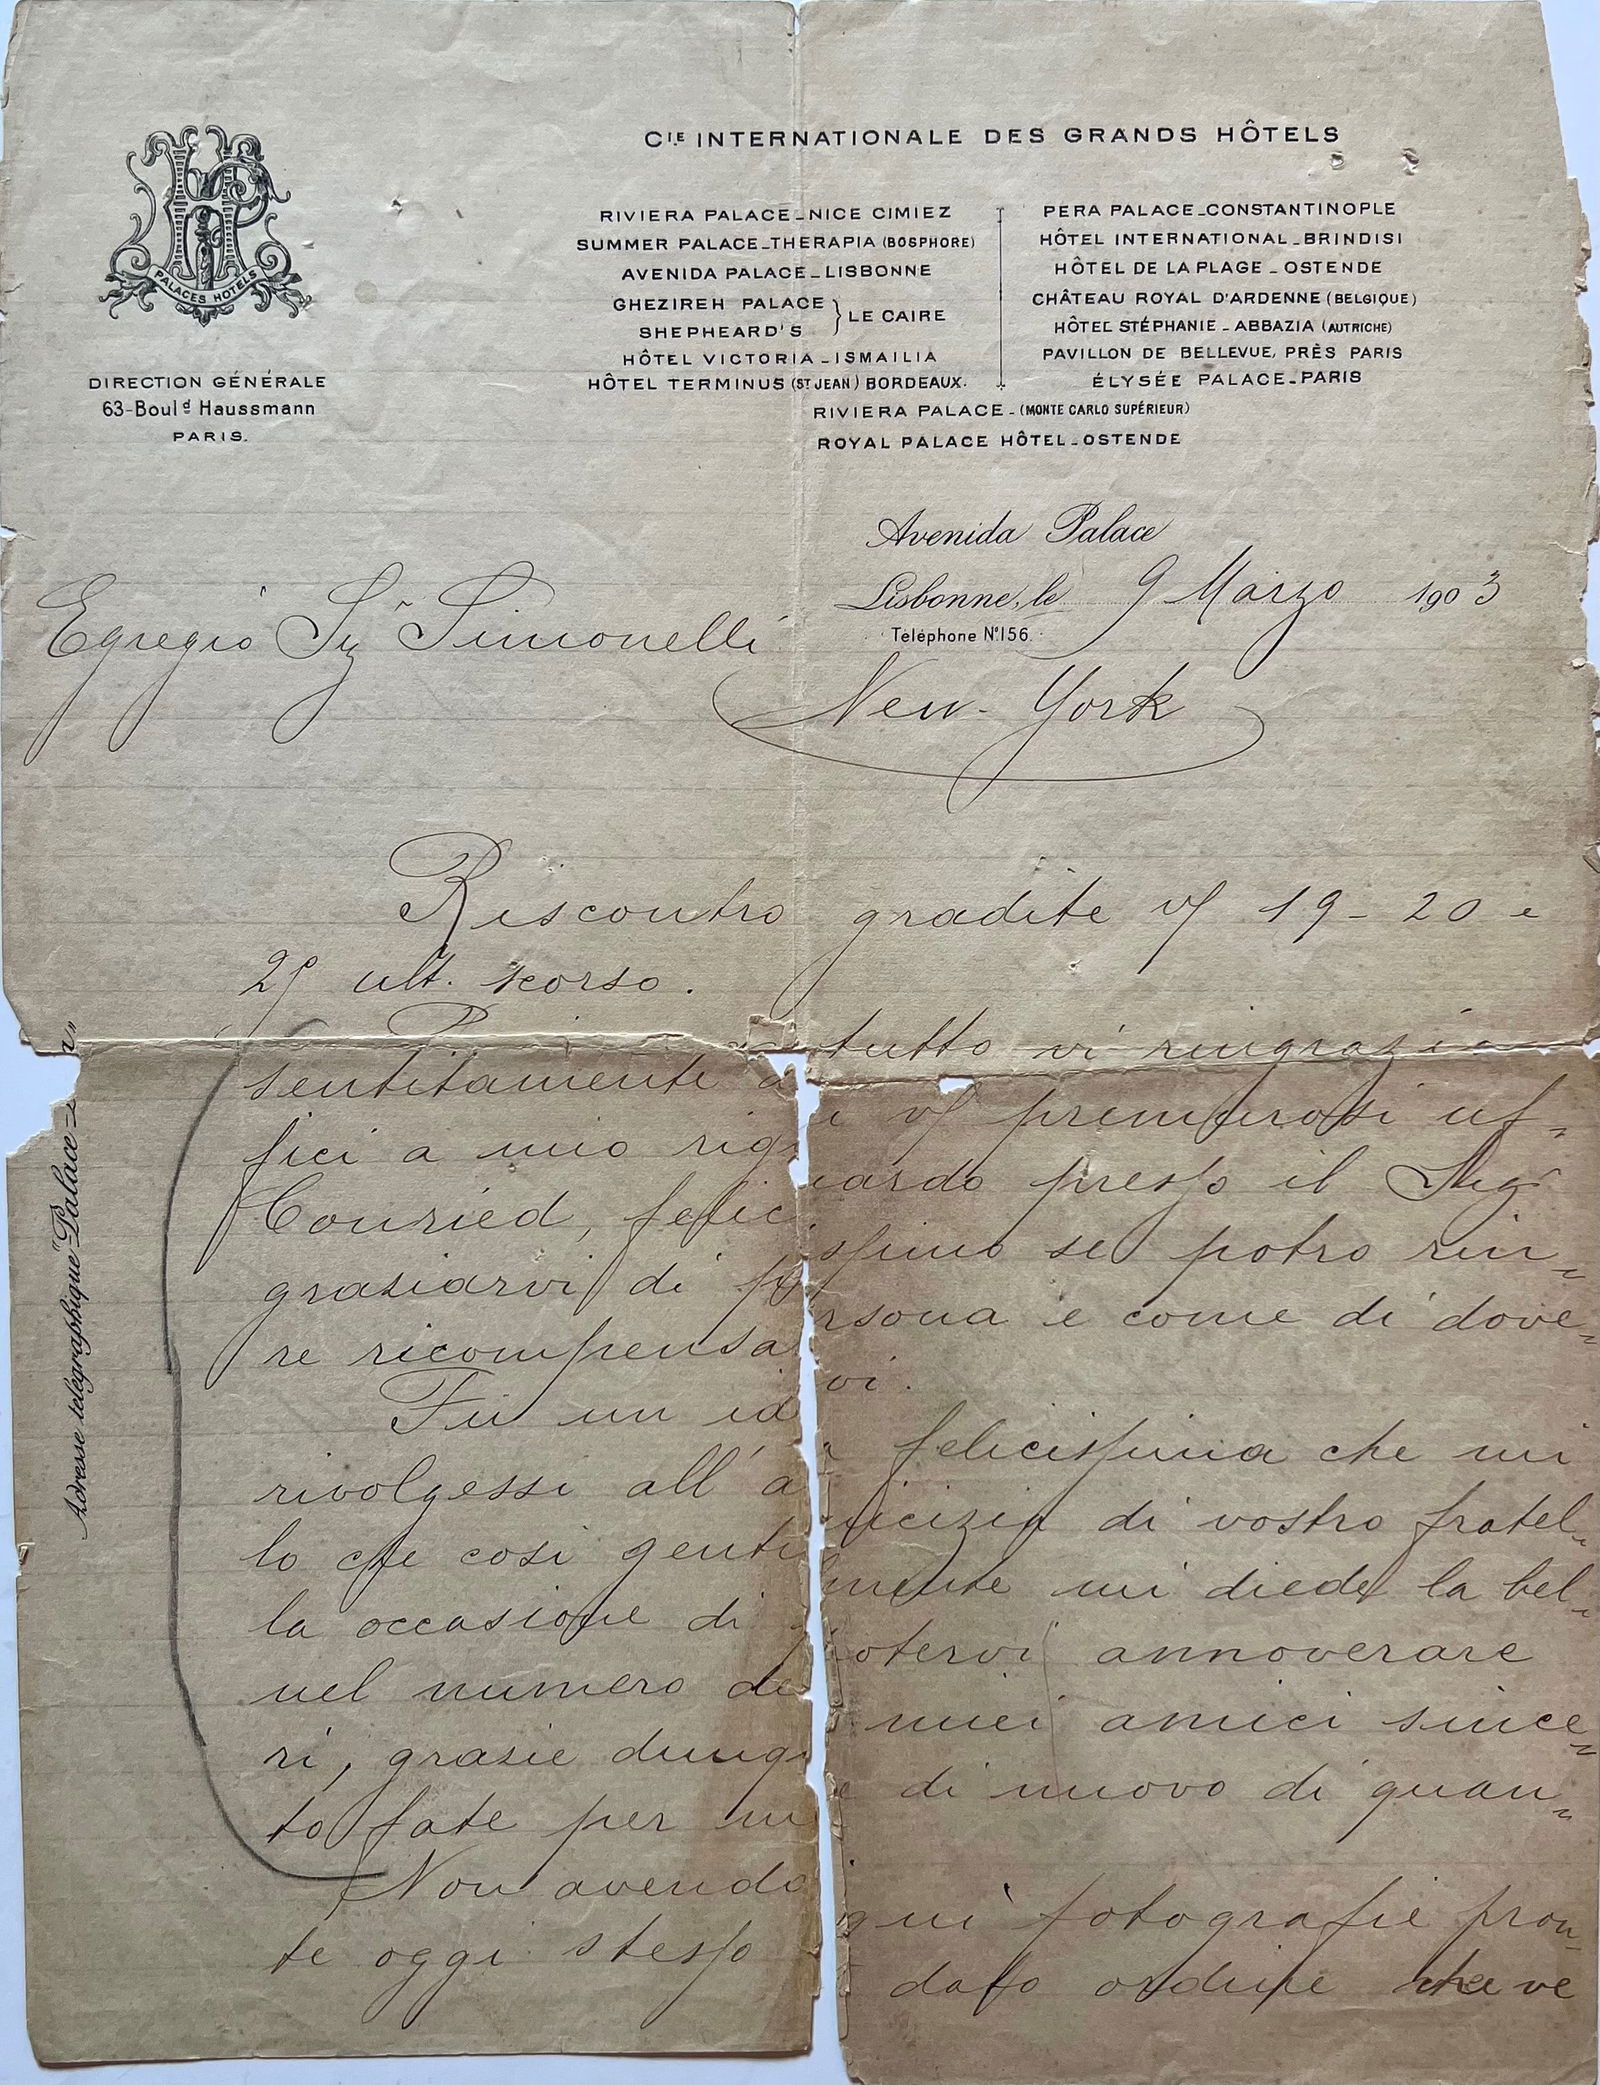 HP
PALACES HOTELS
DIRECTION GÉNÉRALE
63-Boulᵈ Haussmann
PARIS.
Cᴵᴱ INTERNATIONALE DES GRANDS HÔTELS
RIVIERA PALACE_NICE CIMIEZ
SUMMER PALACE_THERAPIA (BOSPHORE)
AVENIDA PALACE_LISBONNE
GHEZIREH PALACE
SHEPHEARD'S } LE CAIRE
HÔTEL VICTORIA_ISMAILIA
HÔTEL TERMINUS (ST JEAN) BORDEAUX.
PERA PALACE_CONSTANTINOPLE
HÔTEL INTERNATIONAL_BRINDISI
HÔTEL DE LA PLAGE_OSTENDE
CHÂTEAU ROYAL D'ARDENNE (BELGIQUE)
HÔTEL STÉPHANIE_ABBAZIA (AUTRICHE)
PAVILLON DE BELLEVUE, PRÈS PARIS
ÉLYSÉE PALACE_PARIS
RIVIERA PALACE_(MONTE CARLO SUPÉRIEUR)
ROYAL PALACE HÔTEL_OSTENDE
Avenida Palace
Lisbonne, le 9 Marzo 1903
Téléphone Nº 156.
Egregio Sigʳ Simonelli
New-York
Riscontro gradite vˢ 19 - 20 e
ult. scorso.
tutto vi ringrazio
sentitamente dei vˢ premurosi uf=
fici a mio riguardo presso il Sigʳ
Conried, felicissimo se potro rin=
graziarvi di persona e come di dove=
re ricompensarvi.
Fu un idea felicissima che mi
rivolgessi all'amicizia di vostro fratel=
lo che cosi gentilmente mi diede la bel=
la occasione di potervi annoverare
nel numero dei miei amici since=
ri, grazie dunque di nuovo di quan=
to fate per me
Non avendo qui fotografie pron=
te oggi stesso dato ordine che ve
Adresse télégraphique "Palace=